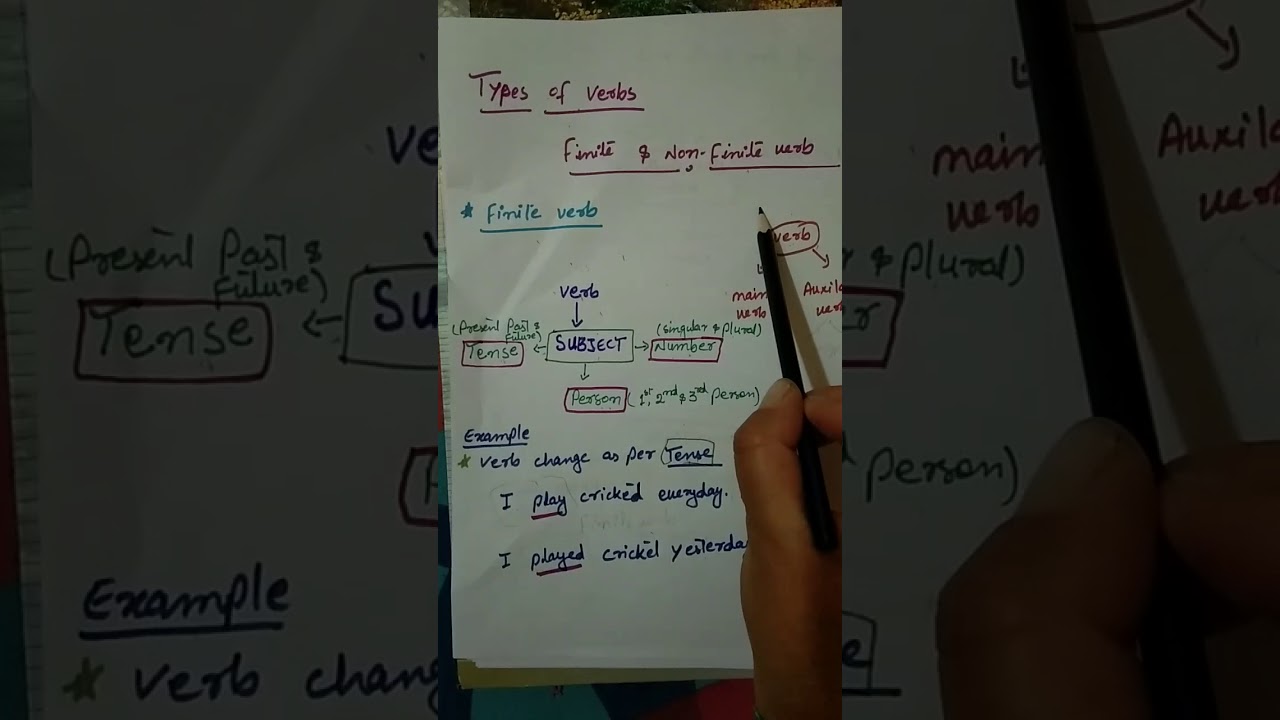 Types of verbs
Finite & Non-Finite verb
* Finite verb
verb
main verb
Auxila
verb
(Present Past & Future)
Tense
SUBJECT
(singular & Plural)
Number
Person (1st, 2nd & 3rd Person)
Example
* verb change as per Tense
I play cricked everyday.
I played cricket yesterda